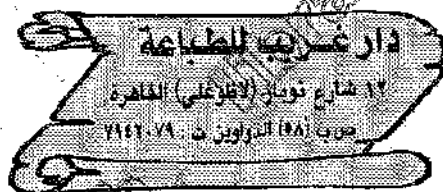 دار غريب للطباعة
١٢ شارع نوبار (لاظوغلي) القاهرة
ص . ب (٥٨) الدواوين ت : ٧٩٤٢٠٧٩